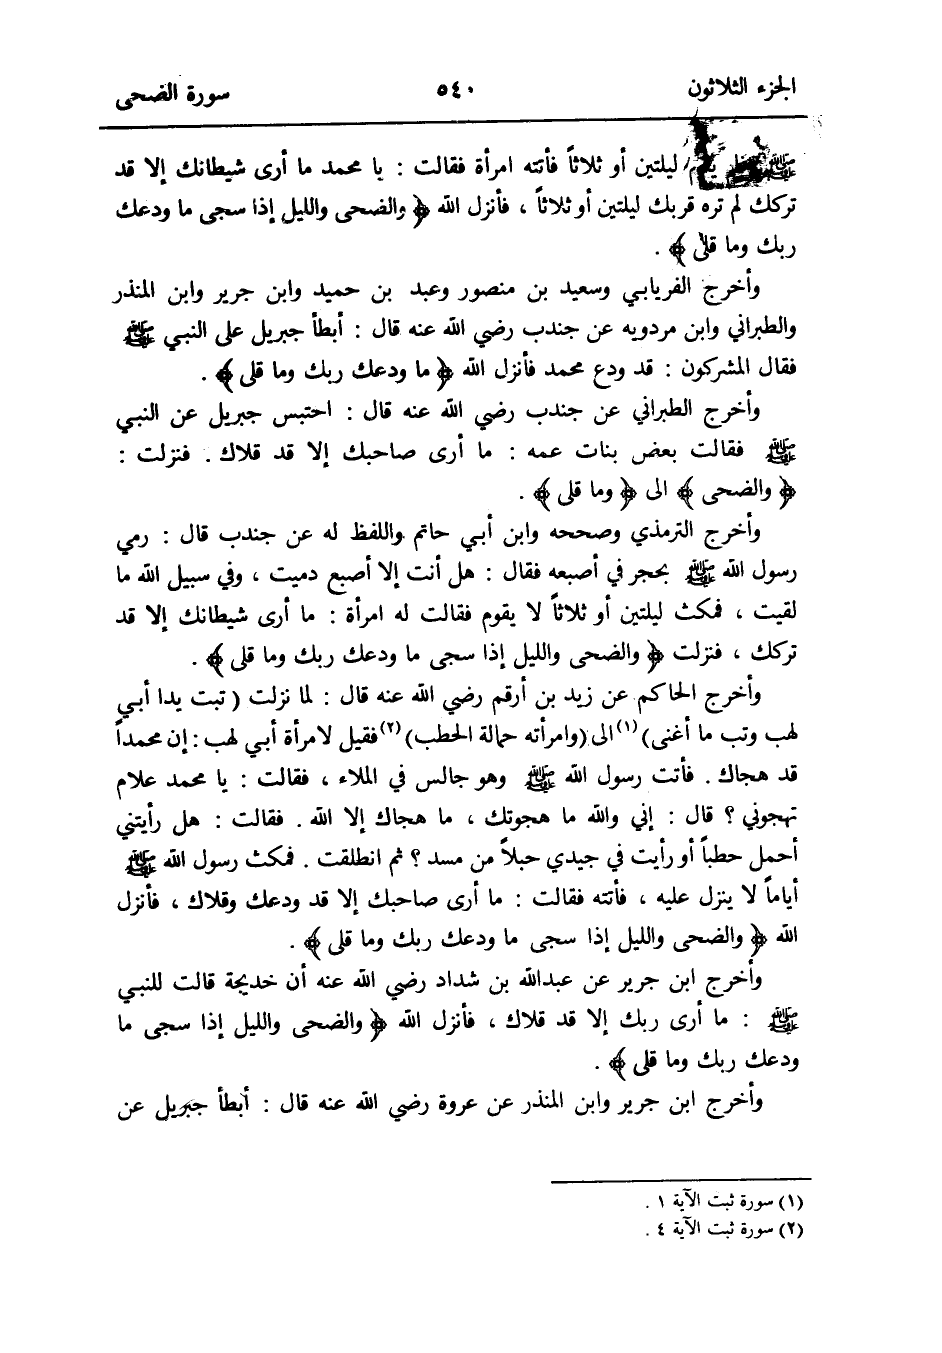 الجزء الثلاثون ٥٤٠ سورة الضحى
ﷺ ليلتين أو ثلاثاً فأتته امرأة فقالت : يا محمد ما أرى شيطانك إلا قد
تركك لم تره قربك ليلتين أو ثلاثاً ، فأنزل الله ﴿ والضحى والليل إذا سجى ما ودعك
ربك وما قلى ﴾ .
وأخرج الفريابي وسعيد بن منصور وعبد بن حميد وابن جرير وابن المنذر
والطبراني وابن مردويه عن جندب رضي الله عنه قال : أبطأ جبريل على النبي ﷺ
فقال المشركون : قد ودع محمد فأنزل الله ﴿ ما ودعك ربك وما قلى ﴾ .
وأخرج الطبراني عن جندب رضي الله عنه قال : احتبس جبريل عن النبي
ﷺ فقالت بعض بنات عمه : ما أرى صاحبك إلا قد قلاك . فنزلت :
﴿ والضحى ﴾ الى ﴿ وما قلى ﴾ .
وأخرج الترمذي وصححه وابن أبي حاتم واللفظ له عن جندب قال : رمي
رسول الله ﷺ بحجر في أصبعه فقال : هل أنت إلا أصبع دميت ، وفي سبيل الله ما
لقيت ، فمكث ليلتين أو ثلاثاً لا يقوم فقالت له امرأة : ما أرى شيطانك إلا قد
تركك ، فنزلت ﴿ والضحى والليل إذا سجى ما ودعك ربك وما قلى ﴾ .
وأخرج الحاكم عن زيد بن أرقم رضي الله عنه قال : لما نزلت ( تبت يدا أبي
لهب وتب ما أغنى )(١) الى (وامرأته حمالة الحطب)(٢) فقيل لامرأة أبي لهب : إن محمداً
قد هجاك . فأتت رسول الله ﷺ وهو جالس في الملاء ، فقالت : يا محمد علام
تهجوني ؟ قال : إني والله ما هجوتك ، ما هجاك إلا الله . فقالت : هل رأيتني
أحمل حطباً أو رأيت في جيدي حبلاً من مسد ؟ ثم انطلقت . فمكث رسول الله ﷺ
أياماً لا ينزل عليه ، فأتته فقالت : ما أرى صاحبك إلا قد ودعك وقلاك ، فأنزل
الله ﴿ والضحى والليل إذا سجى ما ودعك ربك وما قلى ﴾ .
وأخرج ابن جرير عن عبدالله بن شداد رضي الله عنه أن خديجة قالت للنبي
ﷺ : ما أرى ربك إلا قد قلاك ، فأنزل الله ﴿ والضحى والليل إذا سجى ما
ودعك ربك وما قلى ﴾ .
وأخرج ابن جرير وابن المنذر عن عروة رضي الله عنه قال : أبطأ جبريل عن
(١) سورة ثبت الآية ١ .
(٢) سورة ثبت الآية ٤ .